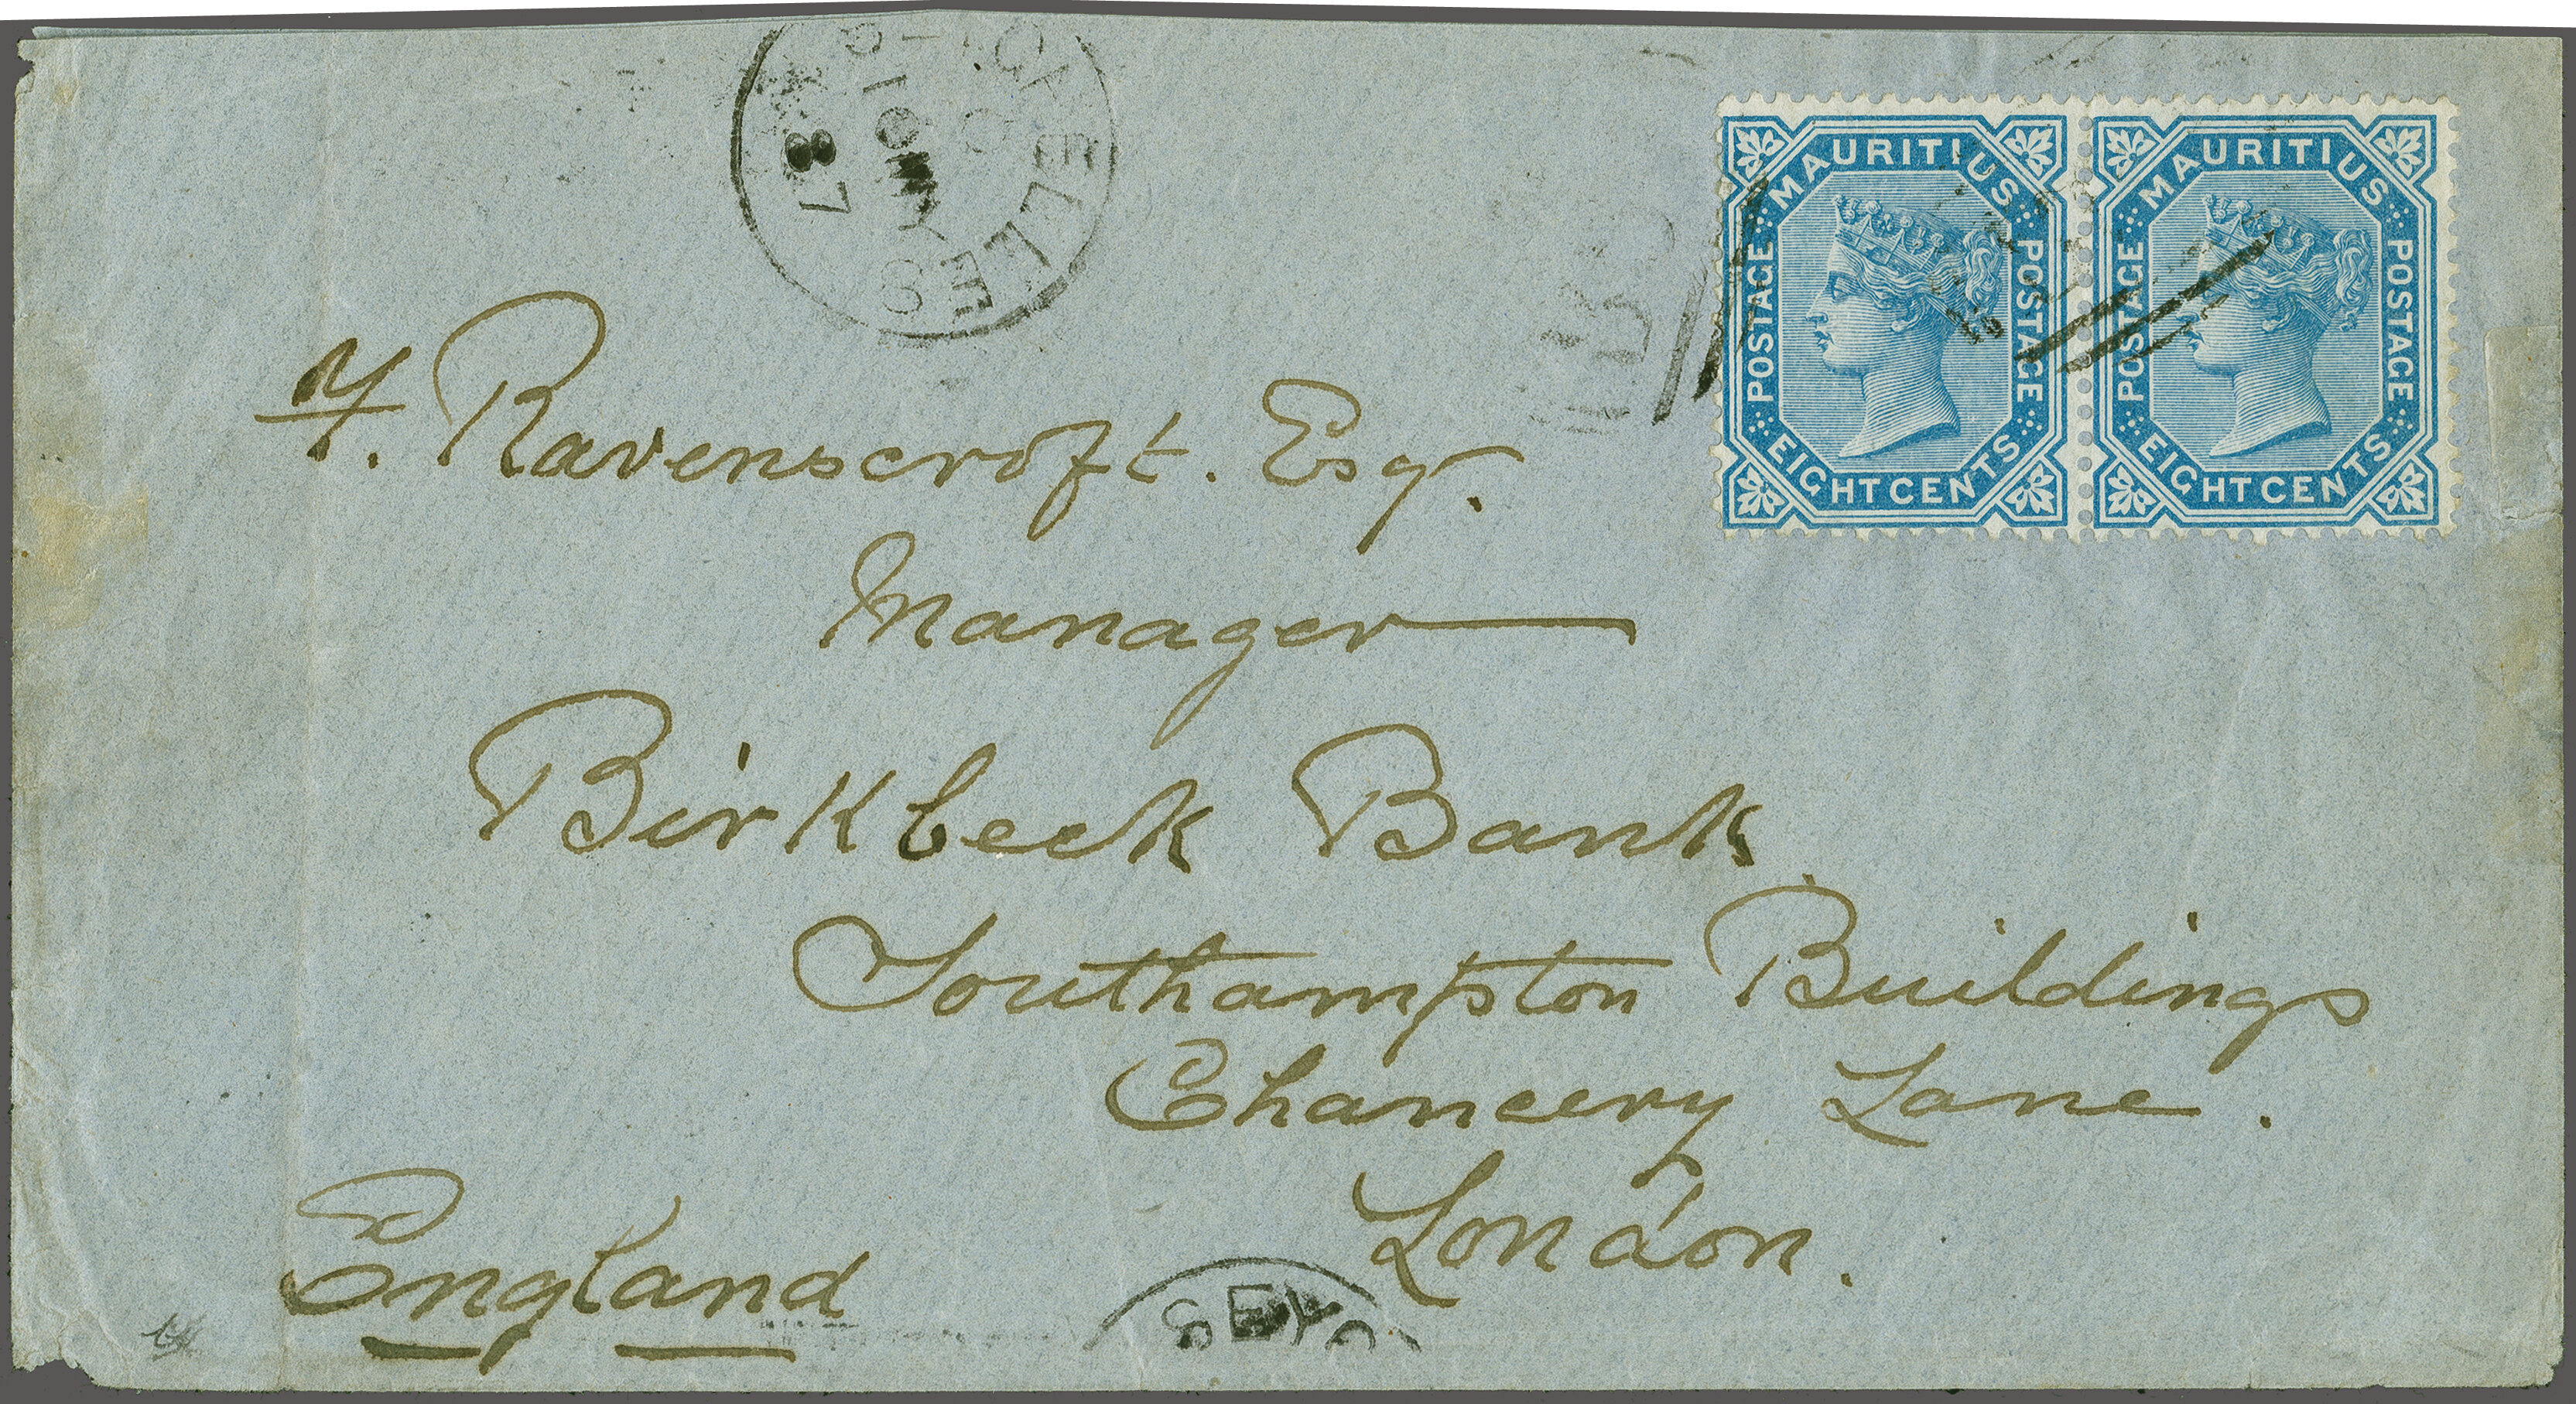 MAURITIUS
POSTAGE
POSTAGE
EIGHT CENTS
MAURITIUS
POSTAGE
POSTAGE
EIGHT CENTS
B64
SEYCHELLES
MY 10
87
Ravenscroft. Esqr.
Manager
Birkbeck Bank
Southampton Buildings
Chancery Lane.
London.
England
SEYC